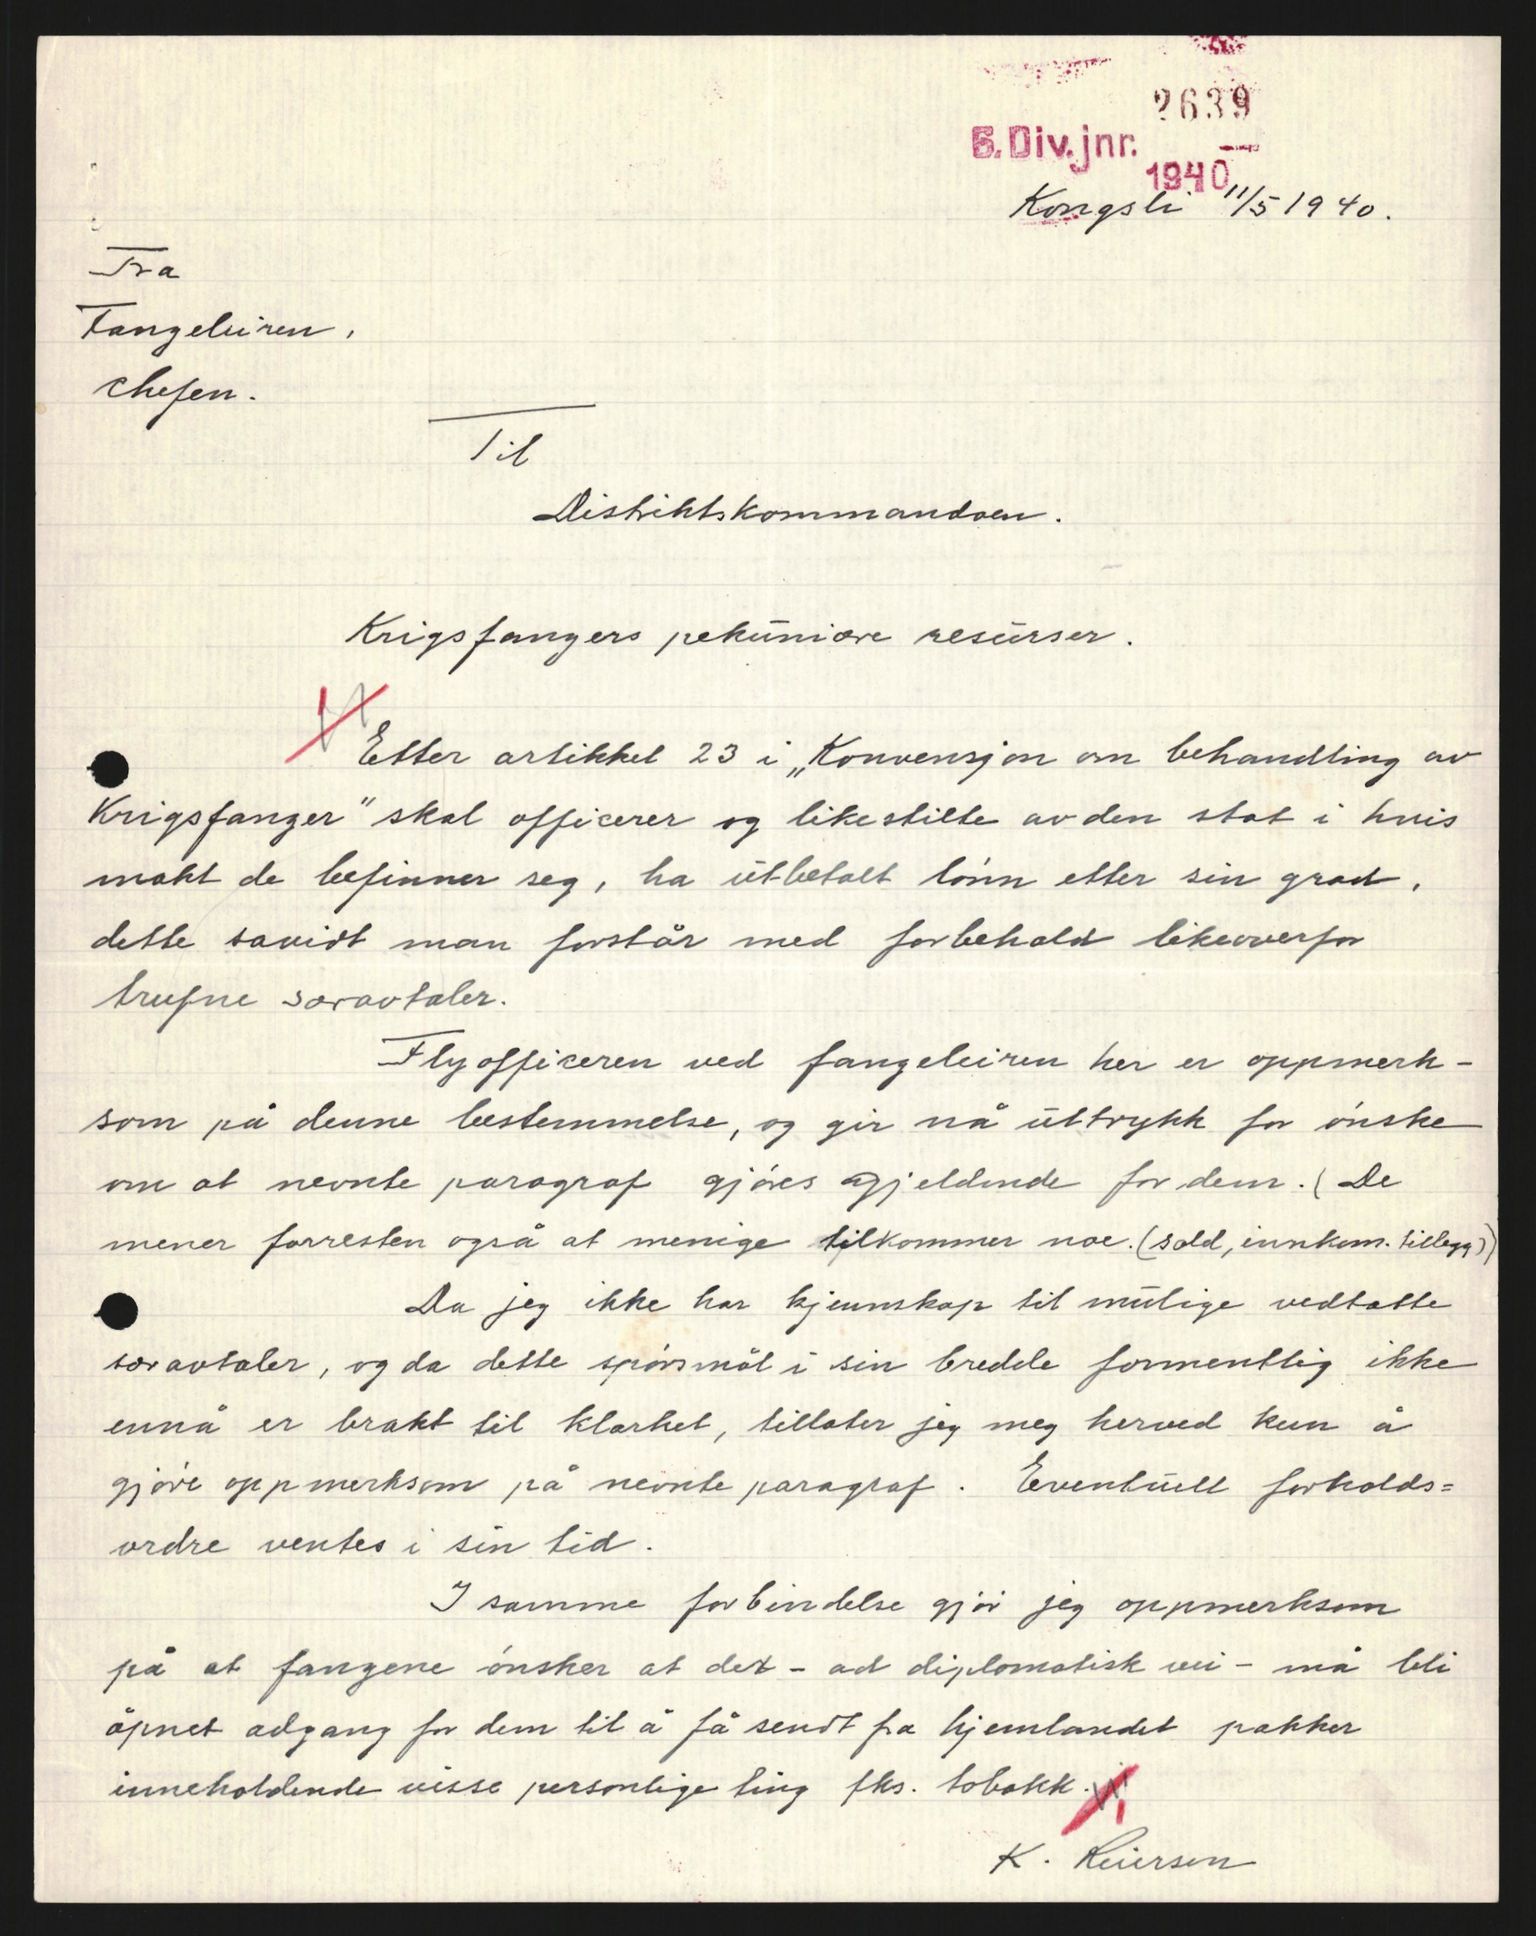 2639
6. Div. jnr.
1940
Kongsli 11/5 1940.
Fra
Fangeleiren,
chefen.
Til
Distriktskommandoen.
Krigsfangers pekuniære resurser.
Etter artikkel 23 i „Konvensjon om behandling av
Krigsfanger" skal officerer og likestilte av den stat i hvis
makt de befinner seg, ha utbetalt lønn etter sin grad,
dette savidt man forstår med forbehold likeoverfor
trufne særavtaler.
Flyofficeren ved fangeleiren her er oppmerk-
som på denne bestemmelse, og gir nå uttrykk for ønske
om at nevnte paragraf gjøres gjeldende for dem. (De
mener forresten også at menige tilkommer noe. (sold, innkom. tillegg))
Da jeg ikke har kjennskap til mulige vedtatte
særavtaler, og da dette spørsmål i sin bredde formentlig ikke
ennå er brakt til klarhet, tillater jeg meg herved kun å
gjøre oppmerksom på nevnte paragraf. Eventuell forholds=
ordre ventes i sin tid.
I samme forbindelse gjør jeg oppmerksom
på at fangene ønsker at det - ad diplomatisk vei - må bli
åpnet adgang for dem til å få sendt fra hjemlandet pakker
inneholdende visse personlige ting fks. tobakk.
K. Reiersen